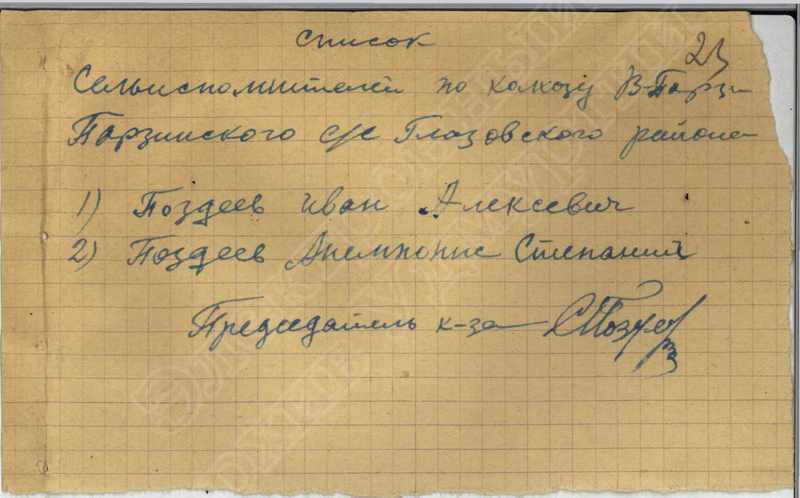 список
23
Сельисполнителей по колхозу В-Парзи
Парзинского с/с Глазовского района
1) Поздеев Иван Алексевич
2) Поздеев Степаний
Председатель к-за СПозд